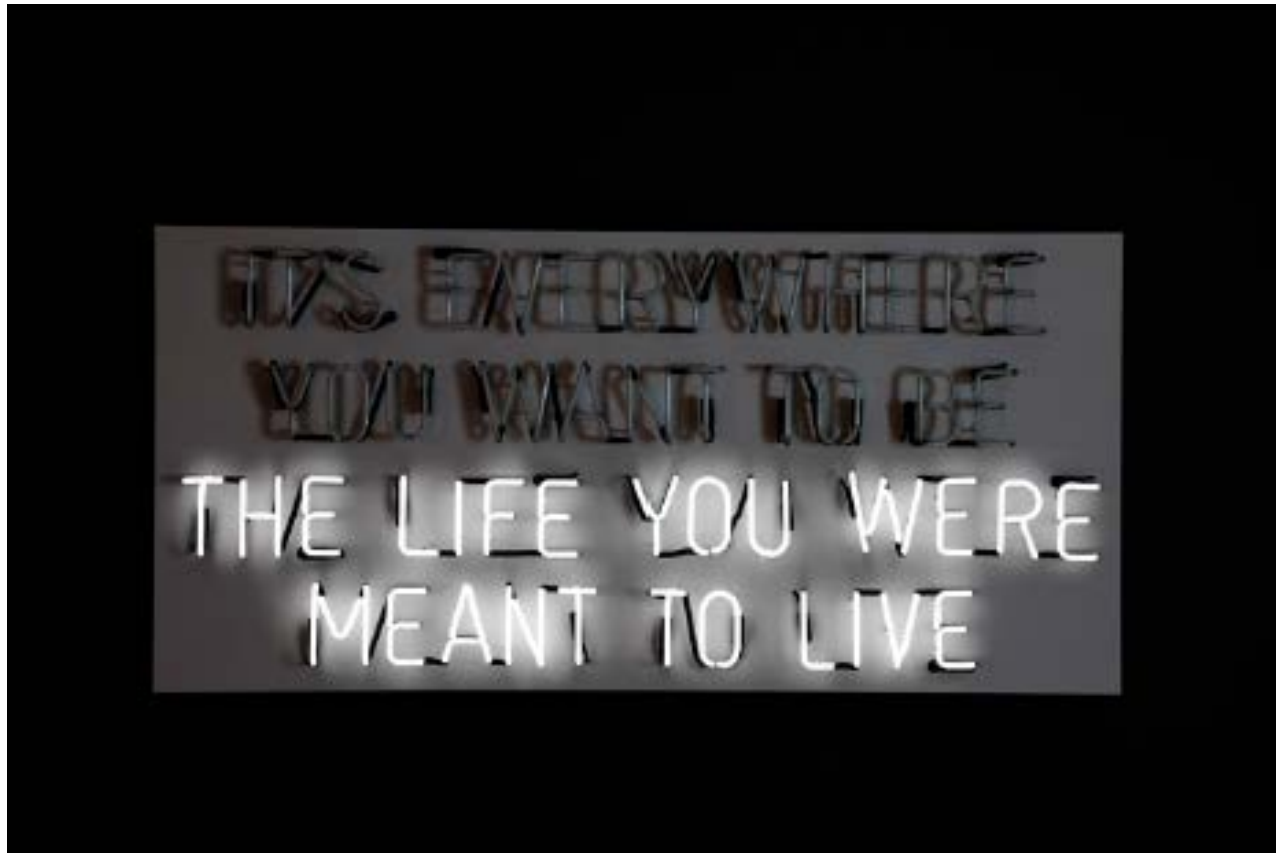 IT'S EVERYWHERE
YOU WANT TO BE
THE LIFE YOU WERE
MEANT TO LIVE